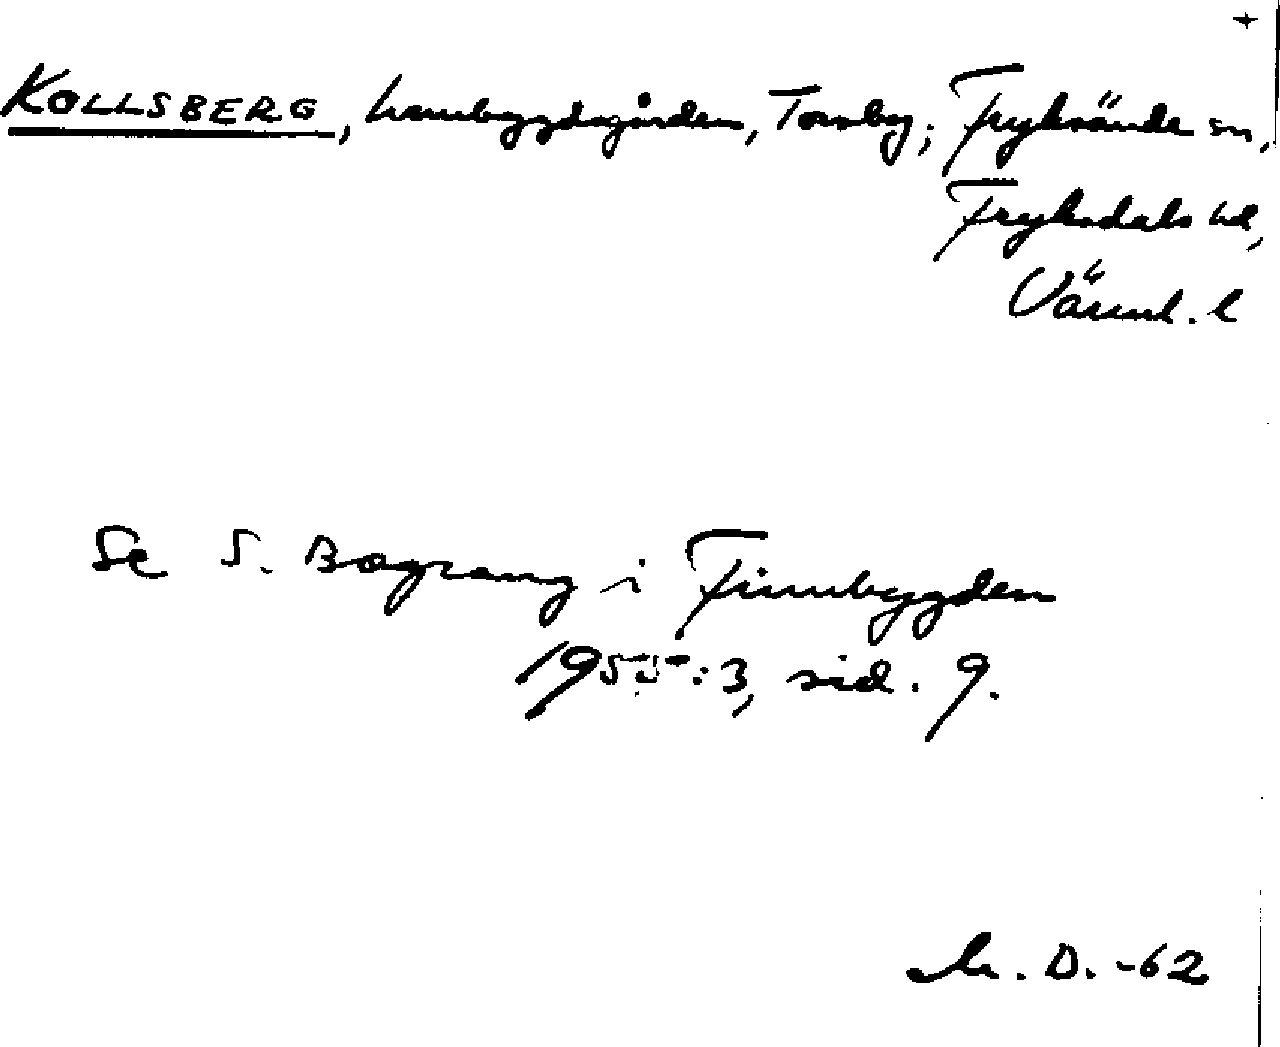 +
KOLLSBERG, hembygdsgården, Torsby; Fryksände sn,
Fryksdals hd,
Värml. l
Se S. Bograng i Finnbygden
1955:3, sid. 9.
D. -62